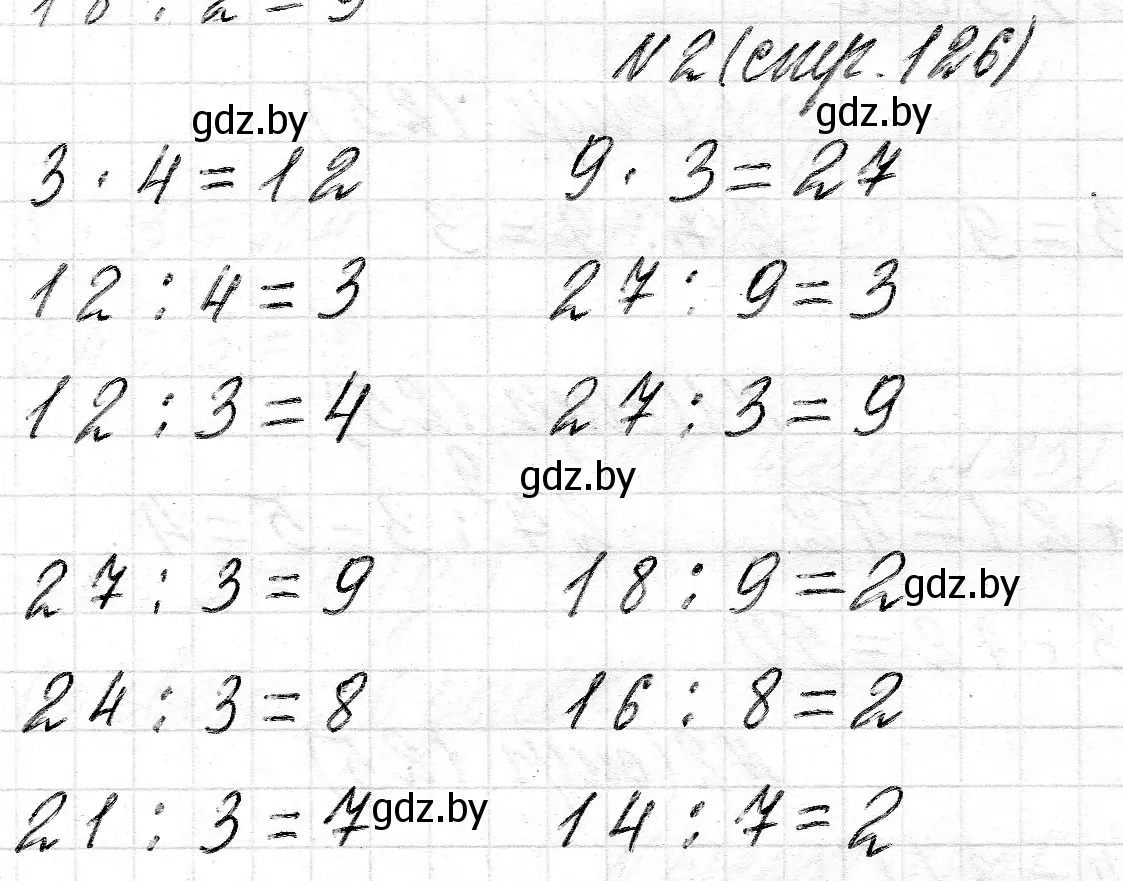 18 : 2 = 9
№2 (стр. 126)
gdz.by gdz.by
3 · 4 = 12 9 · 3 = 27
12 : 4 = 3 27 : 9 = 3
12 : 3 = 4 27 : 3 = 9
gdz.by
27 : 3 = 9 18 : 9 = 2 gdz.by
24 : 3 = 8 16 : 8 = 2
21 : 3 = 7 gdz.by 14 : 7 = 2